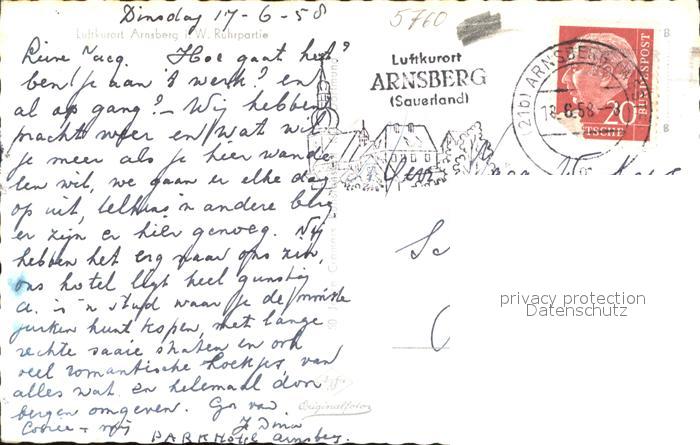 Dinsdag 17-6-58
5760
Luftkurort Arnsberg i. W. Ruhrpartie
Lieve Jacq. Hoe gaat het?
ben je aan 't werk? en
al op gang? - Wij hebben
prachtweer en wat wil
je meer als je hier wande-
len wil, we gaan er elke dag
op uit, telkens 'n andere berg
er zijn er hier genoeg. Wij
hebben het erg naar ons zin,
ons hotel ligt heel gunstig
A. is 'n stad waar je de mooiste
jurken kunt kopen, met lange
rechte saaie straten en ook
veel romantische hoekjes van
alles wat en helemaal door
bergen omgeven. Gr. van
Corrie - mij
PARKHOTEL Arnsberg.
Luftkurort
ARNSBERG
(Sauerland)
(21b) ARNSBERG
18.6.58
20
DEUTSCHE BUNDESPOST
Originalfoto
privacy protection
Datenschutz